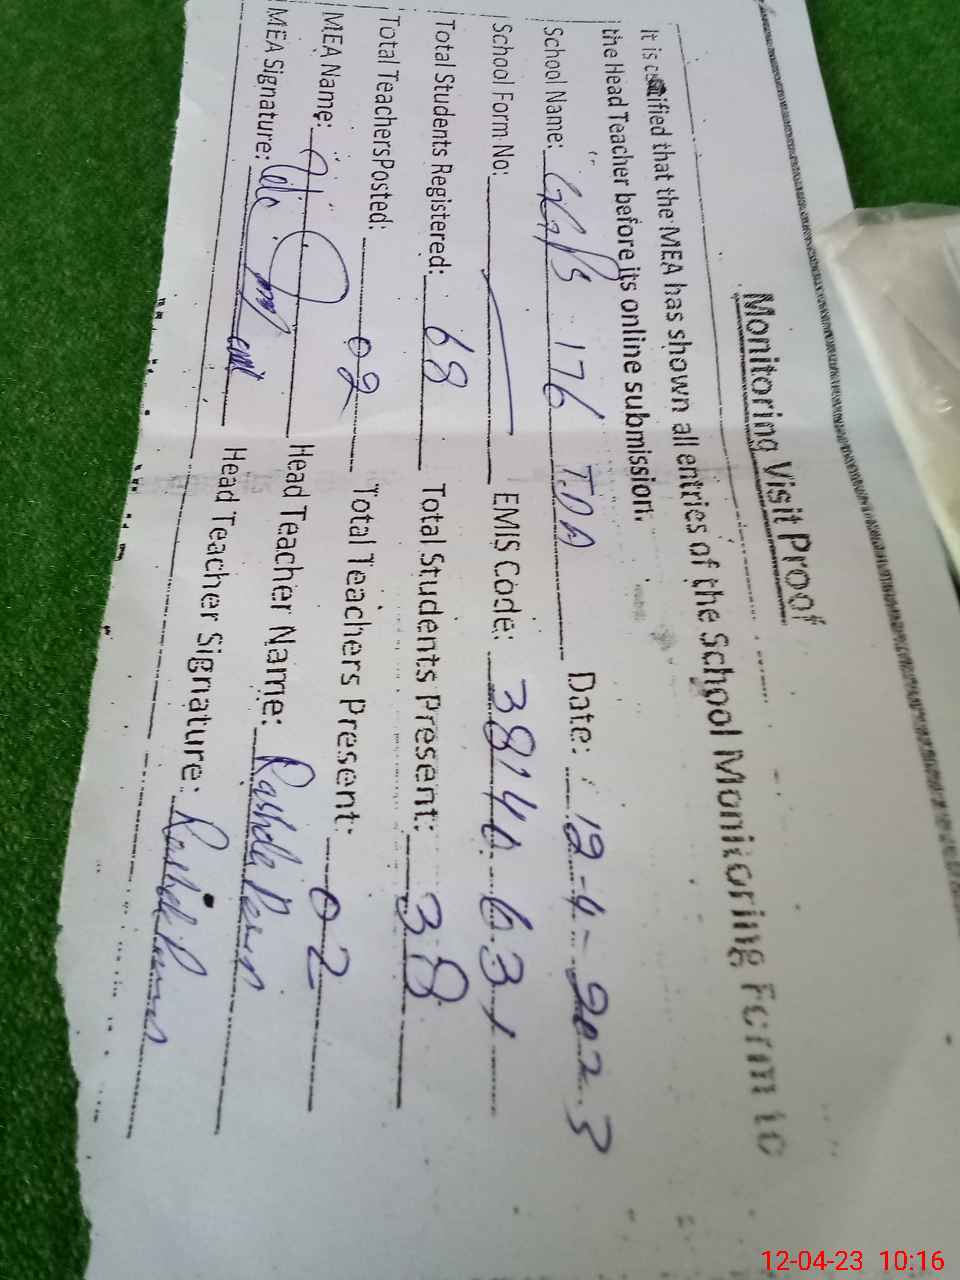 Monitoring Visit Proof
It is certified that the MEA has shown all entries of the School Monitoring Form to
the Head Teacher before its online submission.
School Name: 176 T.D.A Date: 12-4-2023
School Form No: EMIS Code: 38140631
Total Students Registered: 68 Total Students Present: 38
Total Teachers Posted: 02 Total Teachers Present: 02
MEA Name: Head Teacher Name:
MEA Signature: Head Teacher Signature:
12-04-23 10:16